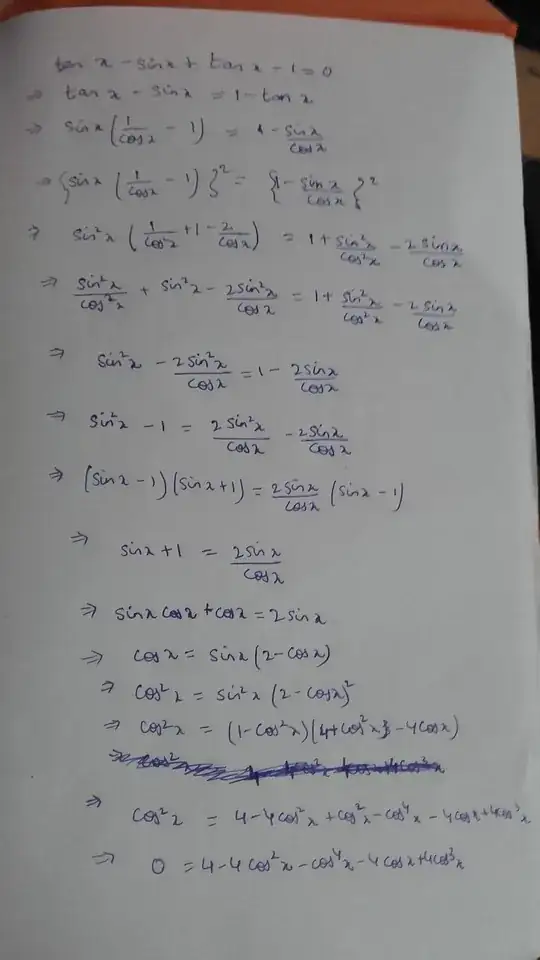 tan x - sin x + tan x - 1 = 0
⇒ tan x - sin x = 1 - tan x
⇒ sin x (1/cos x - 1) = 1 - sin x/cos x
⇒ {sin x (1/cos x - 1)}² = {1 - sin x/cos x}²
⇒ sin² x (1/cos² x + 1 - 2/cos x) = 1 + sin² x/cos² x - 2 sin x/cos x
⇒ sin² x/cos² x + sin² x - 2 sin² x/cos x = 1 + sin² x/cos² x - 2 sin x/cos x
⇒ sin² x - 2 sin² x/cos x = 1 - 2 sin x/cos x
⇒ sin² x - 1 = 2 sin² x/cos x - 2 sin x/cos x
⇒ (sin x - 1)(sin x + 1) = 2 sin x/cos x (sin x - 1)
⇒ sin x + 1 = 2 sin x/cos x
⇒ sin x cos x + cos x = 2 sin x
⇒ cos x = sin x (2 - cos x)
⇒ cos² x = sin² x (2 - cos x)²
⇒ cos² x = (1 - cos² x)(4 + cos² x - 4 cos x)
⇒ cos² x = 4 - 4 cos² x + cos² x - cos⁴ x - 4 cos x + 4 cos³ x
⇒ 0 = 4 - 4 cos² x - cos⁴ x - 4 cos x + 4 cos³ x